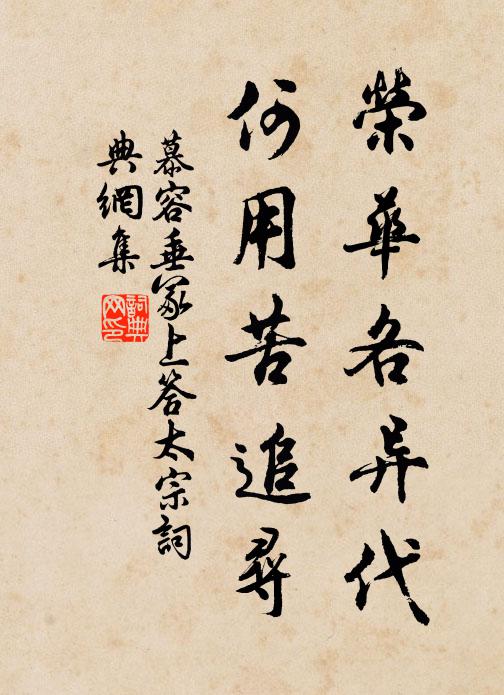 榮華各异代
何用苦追尋
慕容垂冢上答太宗詞
典網集
詞典
网印